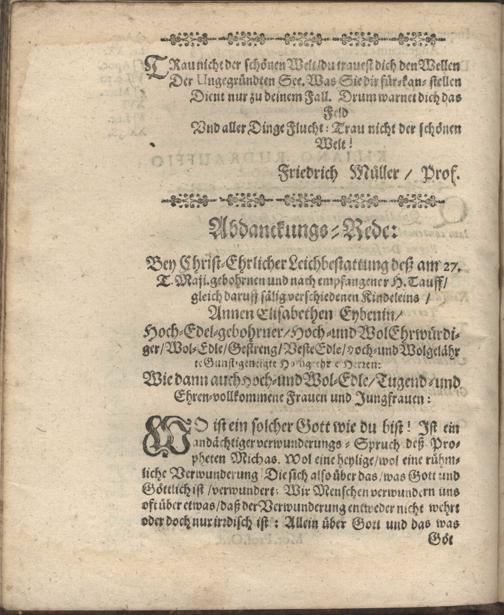 TRau nicht der schönen Welt/du trauest dich den Wellen
Der Ungegründten See. Was Sie dir für-kan-stellen
Dient nur zu deinem Fall. Drum warnet dich das
Feld
Und aller Dinge Flucht: Trau nicht der schönen
Welt!
Friedrich Müller / Prof.
Abdanckungs-Rede:
Bey Christ-Ehrlicher Leichbestattung deß am 27.
T. Maji. gebohrnen und nach empfangener H. Tauff/
gleich darauff sälig verschiedenen Kindeleins /
Annen Elisabethen Eybenin/
Hoch-Edel-gebohrner/Hoch-und WolEhrwürdi-
ger/Wol-Edle/Gestreng/VesteEdle/Hoch-und Wolgelähr
te Gunst-geneigte Hochgeehrte Herren:
Wie dann auch Hoch-und Wol-Edle/Tugend-und
Ehren-vollkommene Frauen und Jungfrauen:
WO ist ein solcher Gott wie du bist! Ist ein
andächtiger verwunderungs-Spruch deß Pro-
pheten Michas. Wol eine heylige/wol eine rühm-
liche Verwunderung/Die sich also über das/was Gott und
Göttlich ist/verwundert: Wir Menschen verwundern uns
oft über etwas/daß der Verwunderung entweder nicht wehrt
oder doch nur irdisch ist: Allein über Gott und das was
Göt